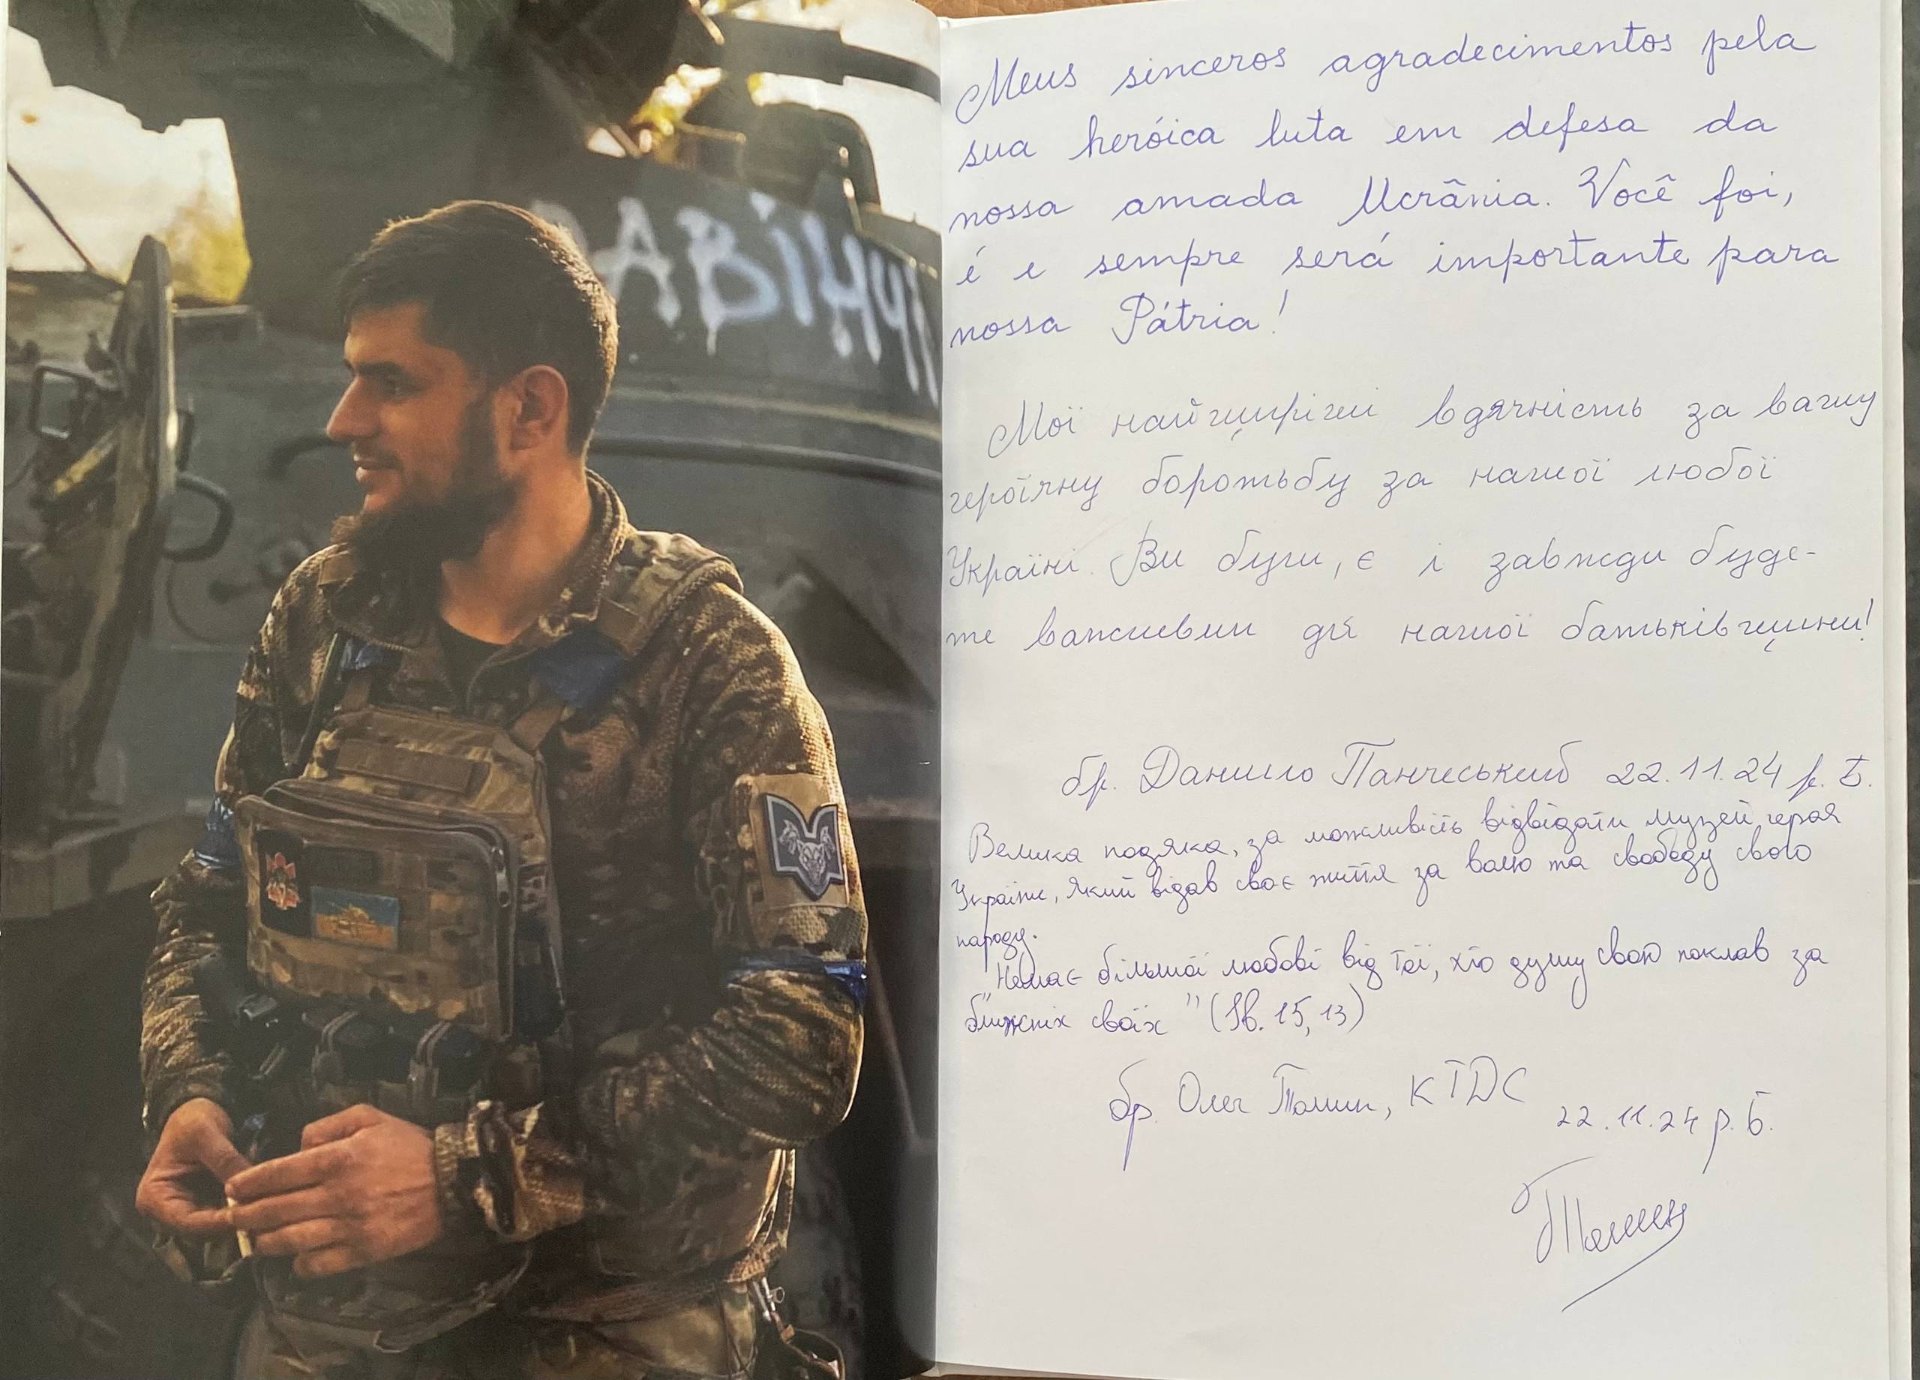 АВІНЧІ
Meus sinceros agradecimentos pela
sua heróica luta em defesa da
nossa amada Ucrânia. Você foi,
é e sempre será importante para
nossa Pátria!
Мої найщиріші вдячність за вашу
героїчну боротьбу за нашої любої
Україні. Ви були, є і завжди буде-
те важливим для нашої батьківщини!
бр. Данило 22.11.24 р. Б.
Велика подяка, за можливість відвідати музей героя
України, який віддав своє життя за волю та свободу свого
народу.
"Немає більшої любові від тої, хто душу свою поклав за
ближніх своїх" (Ів. 15, 13)
бр. Олег Томин, КТДС
22.11.24 р. Б.